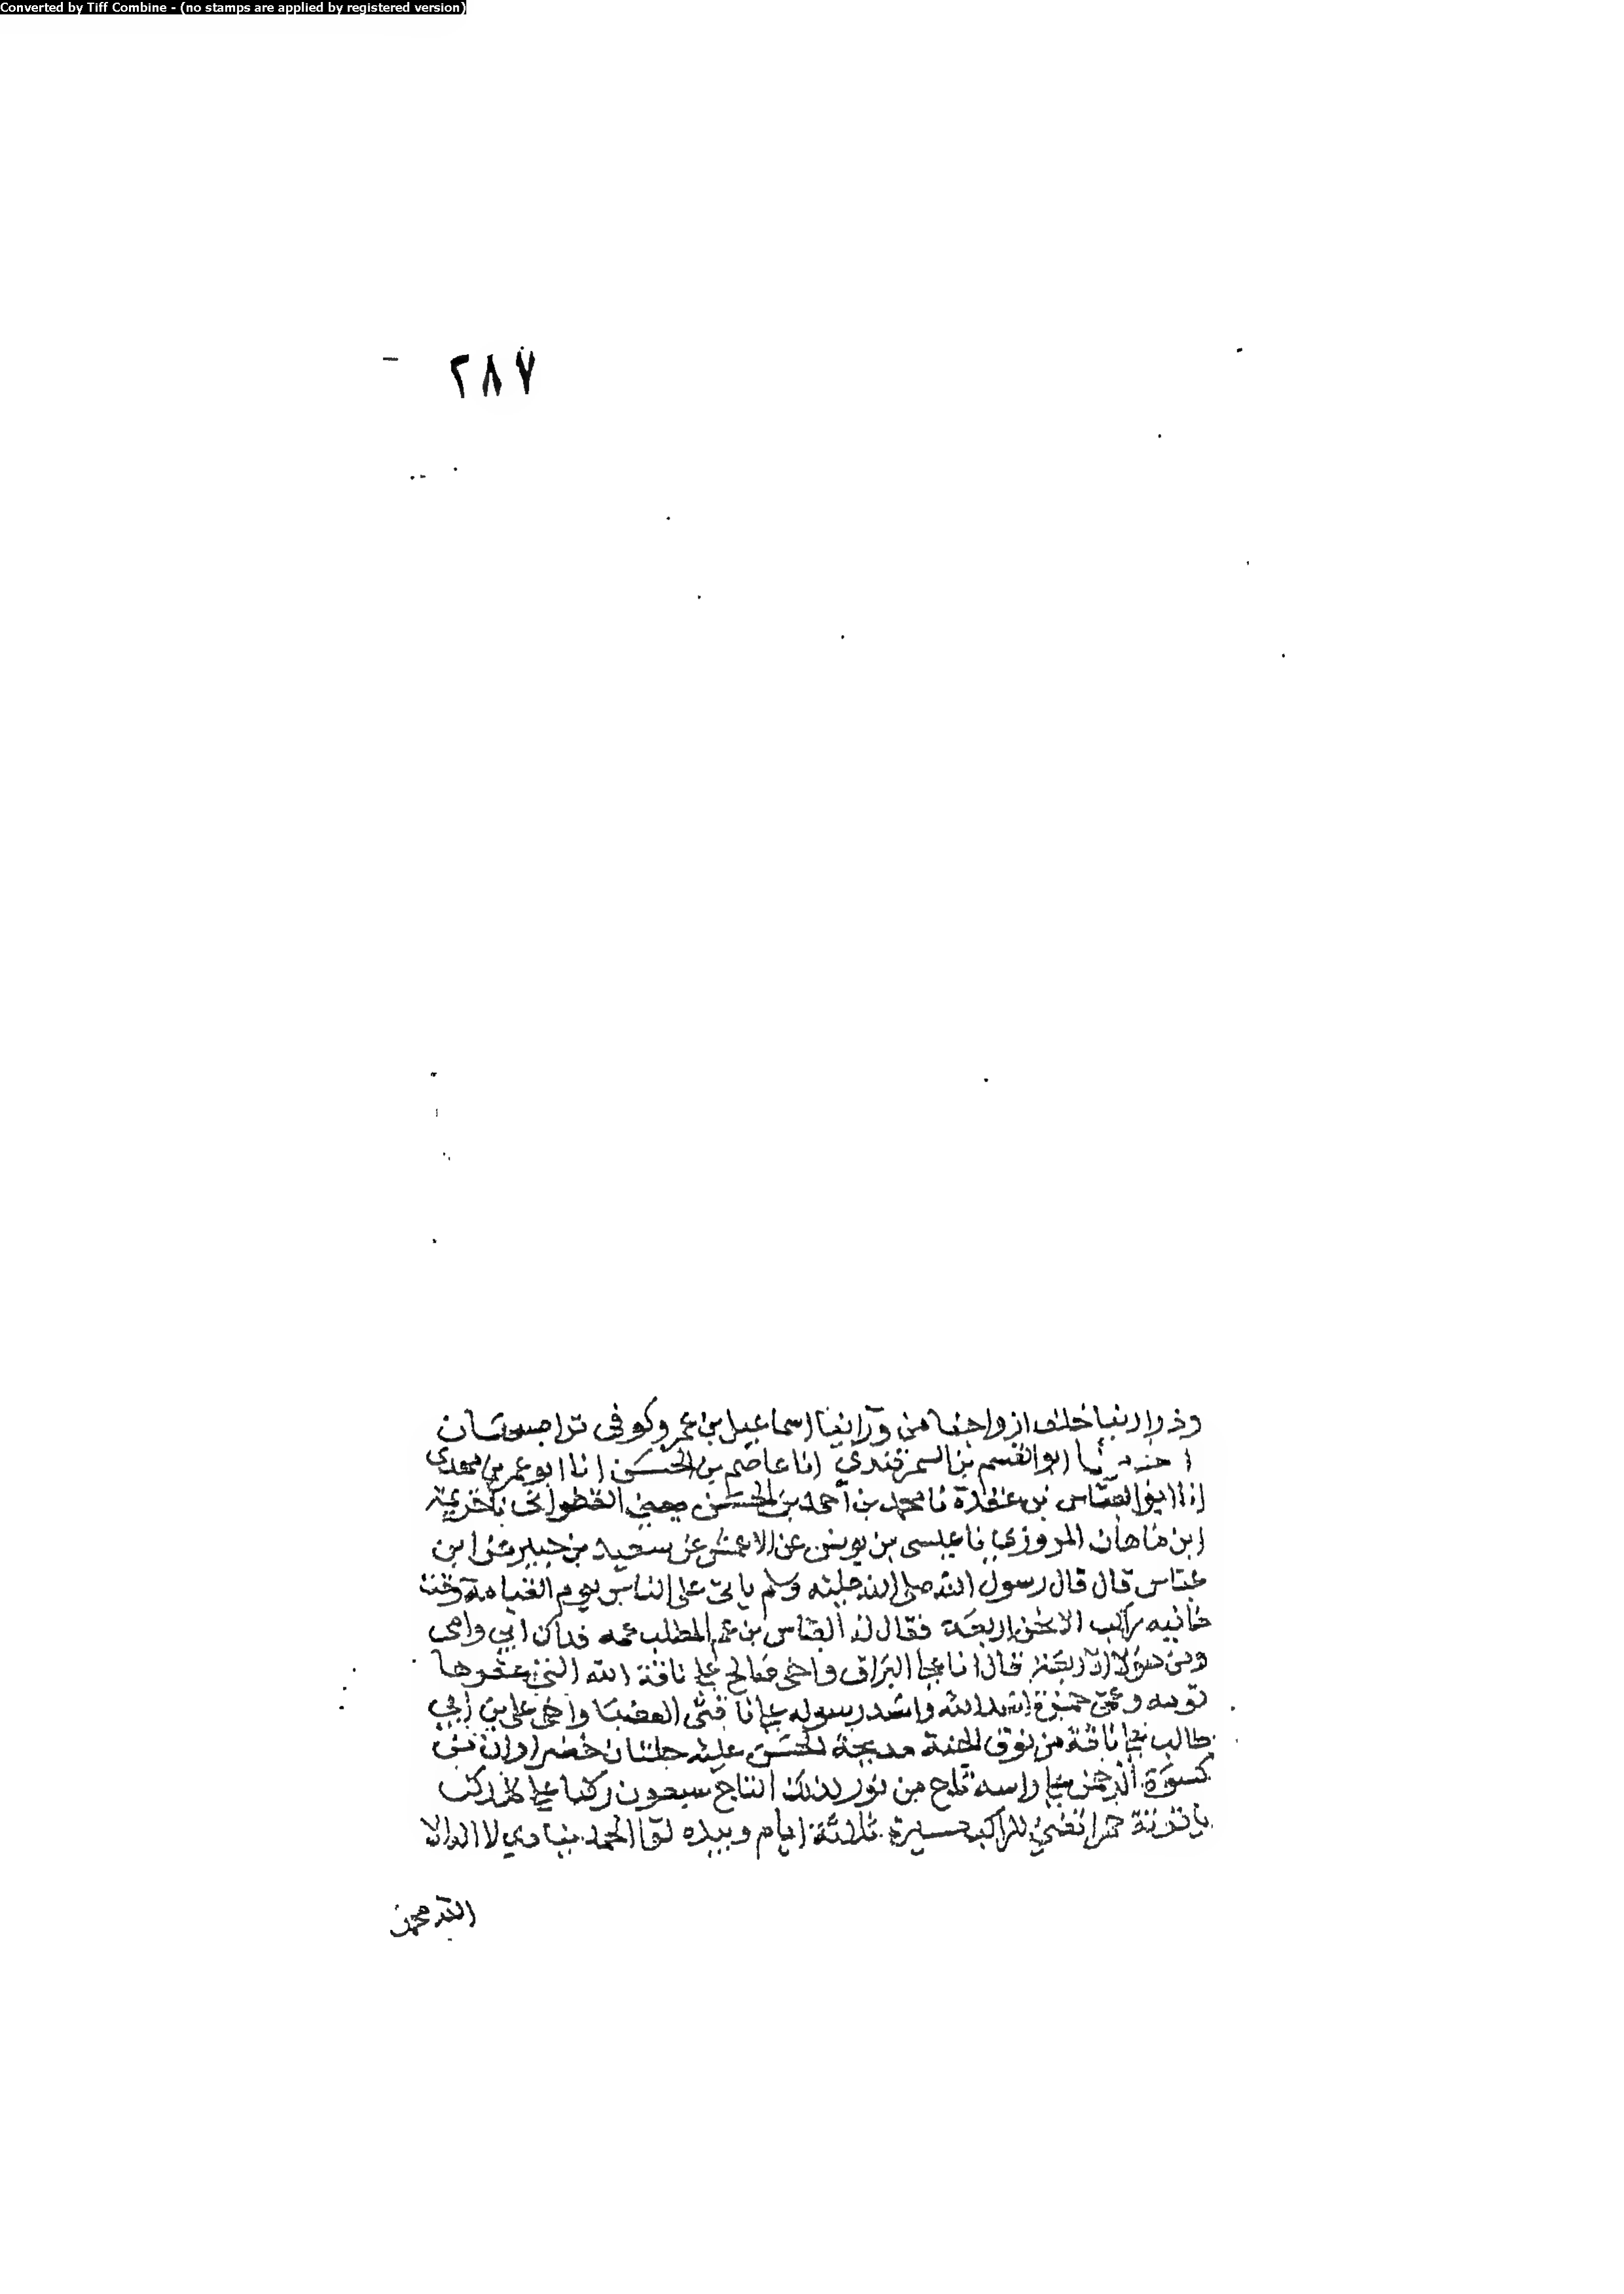 Converted by Tiff Combine - (no stamps are applied by registered version)
٢٨٧
وذرارينا خلف ازواجنا من ورائنا اسماعيل بن عمرو كوفي نزل اصبهان
ابو القسم بن السمرقندي انا عاصم بن الحسن انا ابو عمر بن مهدي
انا ابو العباس بن عقدة نا محمد بن أحمد بن الحسن يعني القطواني نا خزيمة
ابن ماهان المروزي نا عيسى بن يونس عن الاعمش عن سعيد بن جبير عن ابن
عباس قال قال رسول الله صلى الله عليه وسلم ياتي على الناس يوم القيامة وقت
ما فيه راكب الا نحن اربعة فقال له العباس بن عبد المطلب عمه فداك ابي وامي
ومن هؤلا الاربعة قال انا على البراق واخي صالح على ناقة الله التي عقرها
قومه وعمي حمزة اسد الله واسد رسوله على ناقتي العضبا واخي علي بن ابي
طالب على ناقة من نوق الجنة مدبجة عليه حلتان خضراوان من
كسوة الرحمن على راسه تاج من نور لذلك التاج سبعون ركنا على كل ركن
ياقوتة حمرا تضيئ للراكب مسيرة ثلاثة ايام وبيده لوا الحمد ينادي لا اله الا
الله محمد